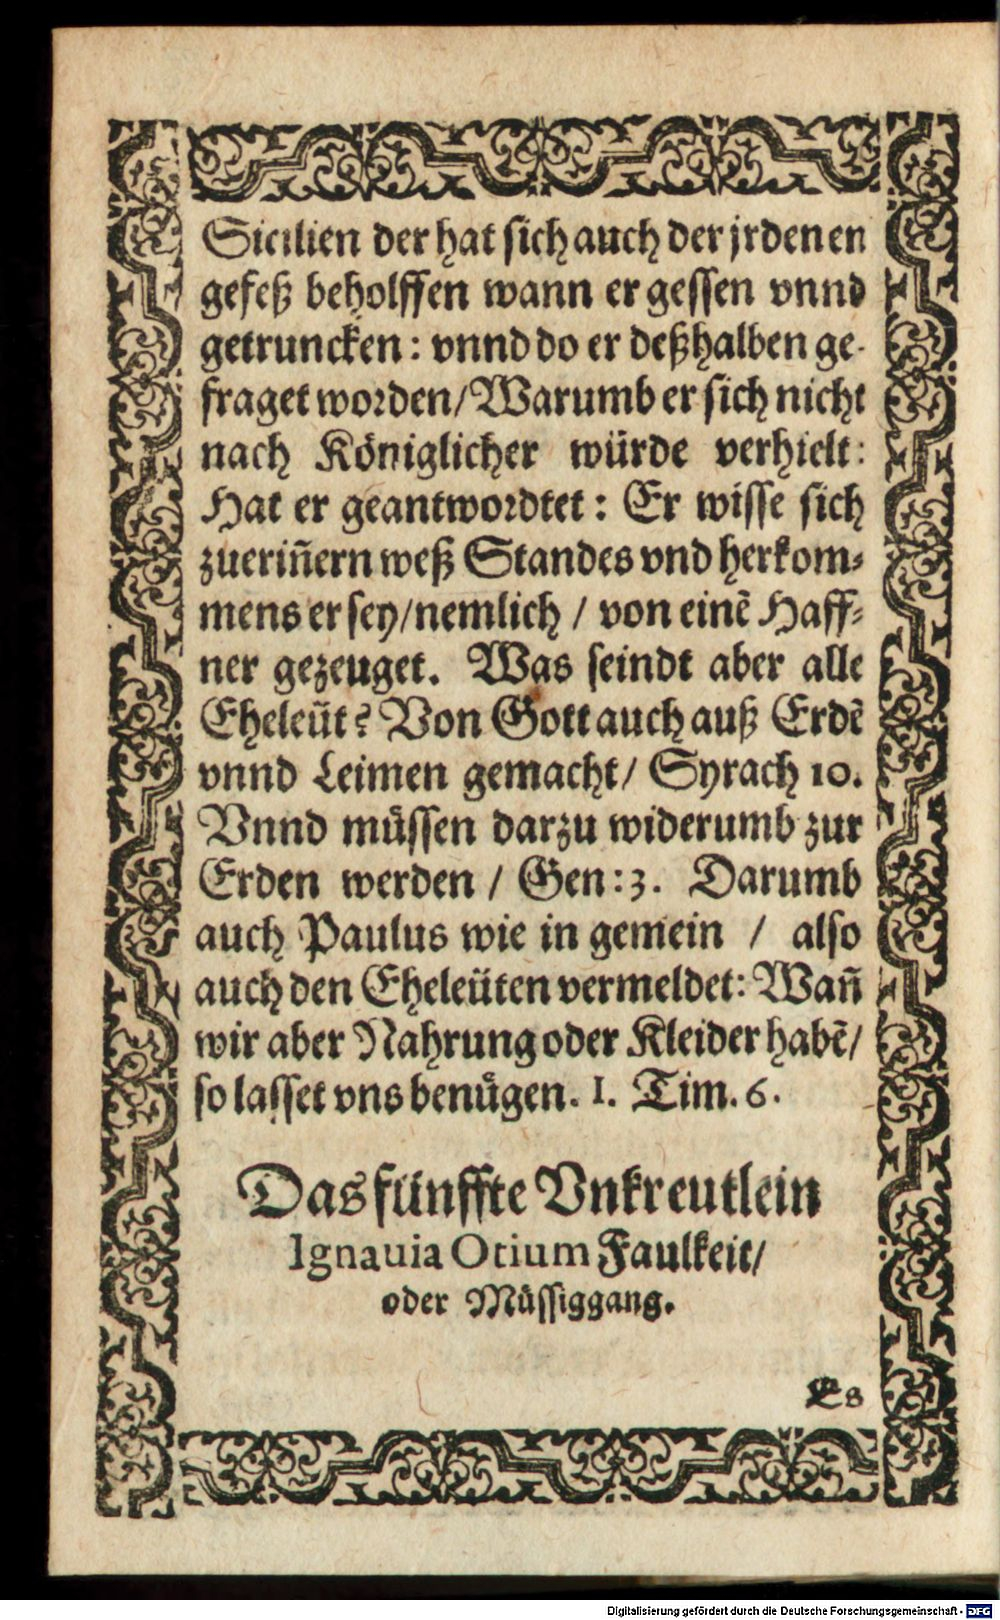 Sicilien der hat sich auch der jrdenen
gefeß beholffen wann er gessen vnnd
getruncken: vnnd do er deßhalben ge-
fraget worden/ Warumb er sich nicht
nach Königlicher würde verhielt:
Hat er geantwordtet: Er wisse sich
zuerin̄ern weß Standes vnd herkom-
mens er sey/ nemlich / von einē Haff-
ner gezeuget. Was seindt aber alle
Eheleüt? Von Gott auch auß Erdē
vnnd Leimen gemacht/ Syrach 10.
Vnnd müssen darzu widerumb zur
Erden werden / Gen: 3. Darumb
auch Paulus wie in gemein / also
auch den Eheleüten vermeldet: Wan̄
wir aber Nahrung oder Kleider habē/
so lasset vns benügen. 1. Tim. 6.
Das fünffte Vnkreutlein
Ignauia Otium Faulkeit/
oder Müssiggang.
Es
Digitalisierung gefördert durch die Deutsche Forschungsgemeinschaft - DFG